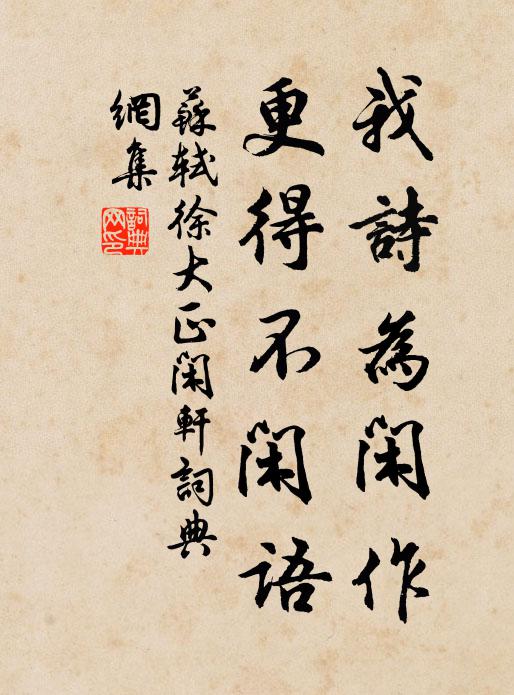 我詩為閑作
更得不閑語
蘇軾徐大正閑軒詞典
網集
詞典
网印